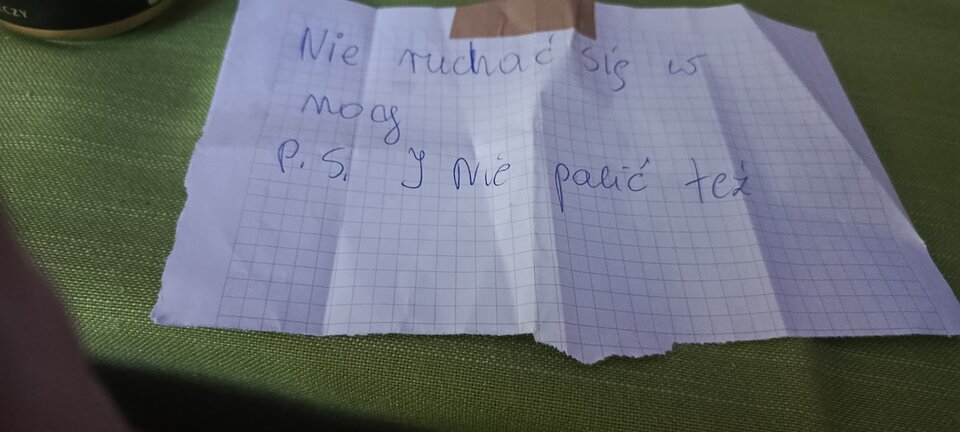 CZY
Nie ruchać się w
nocy
P.S. I Nie palić też